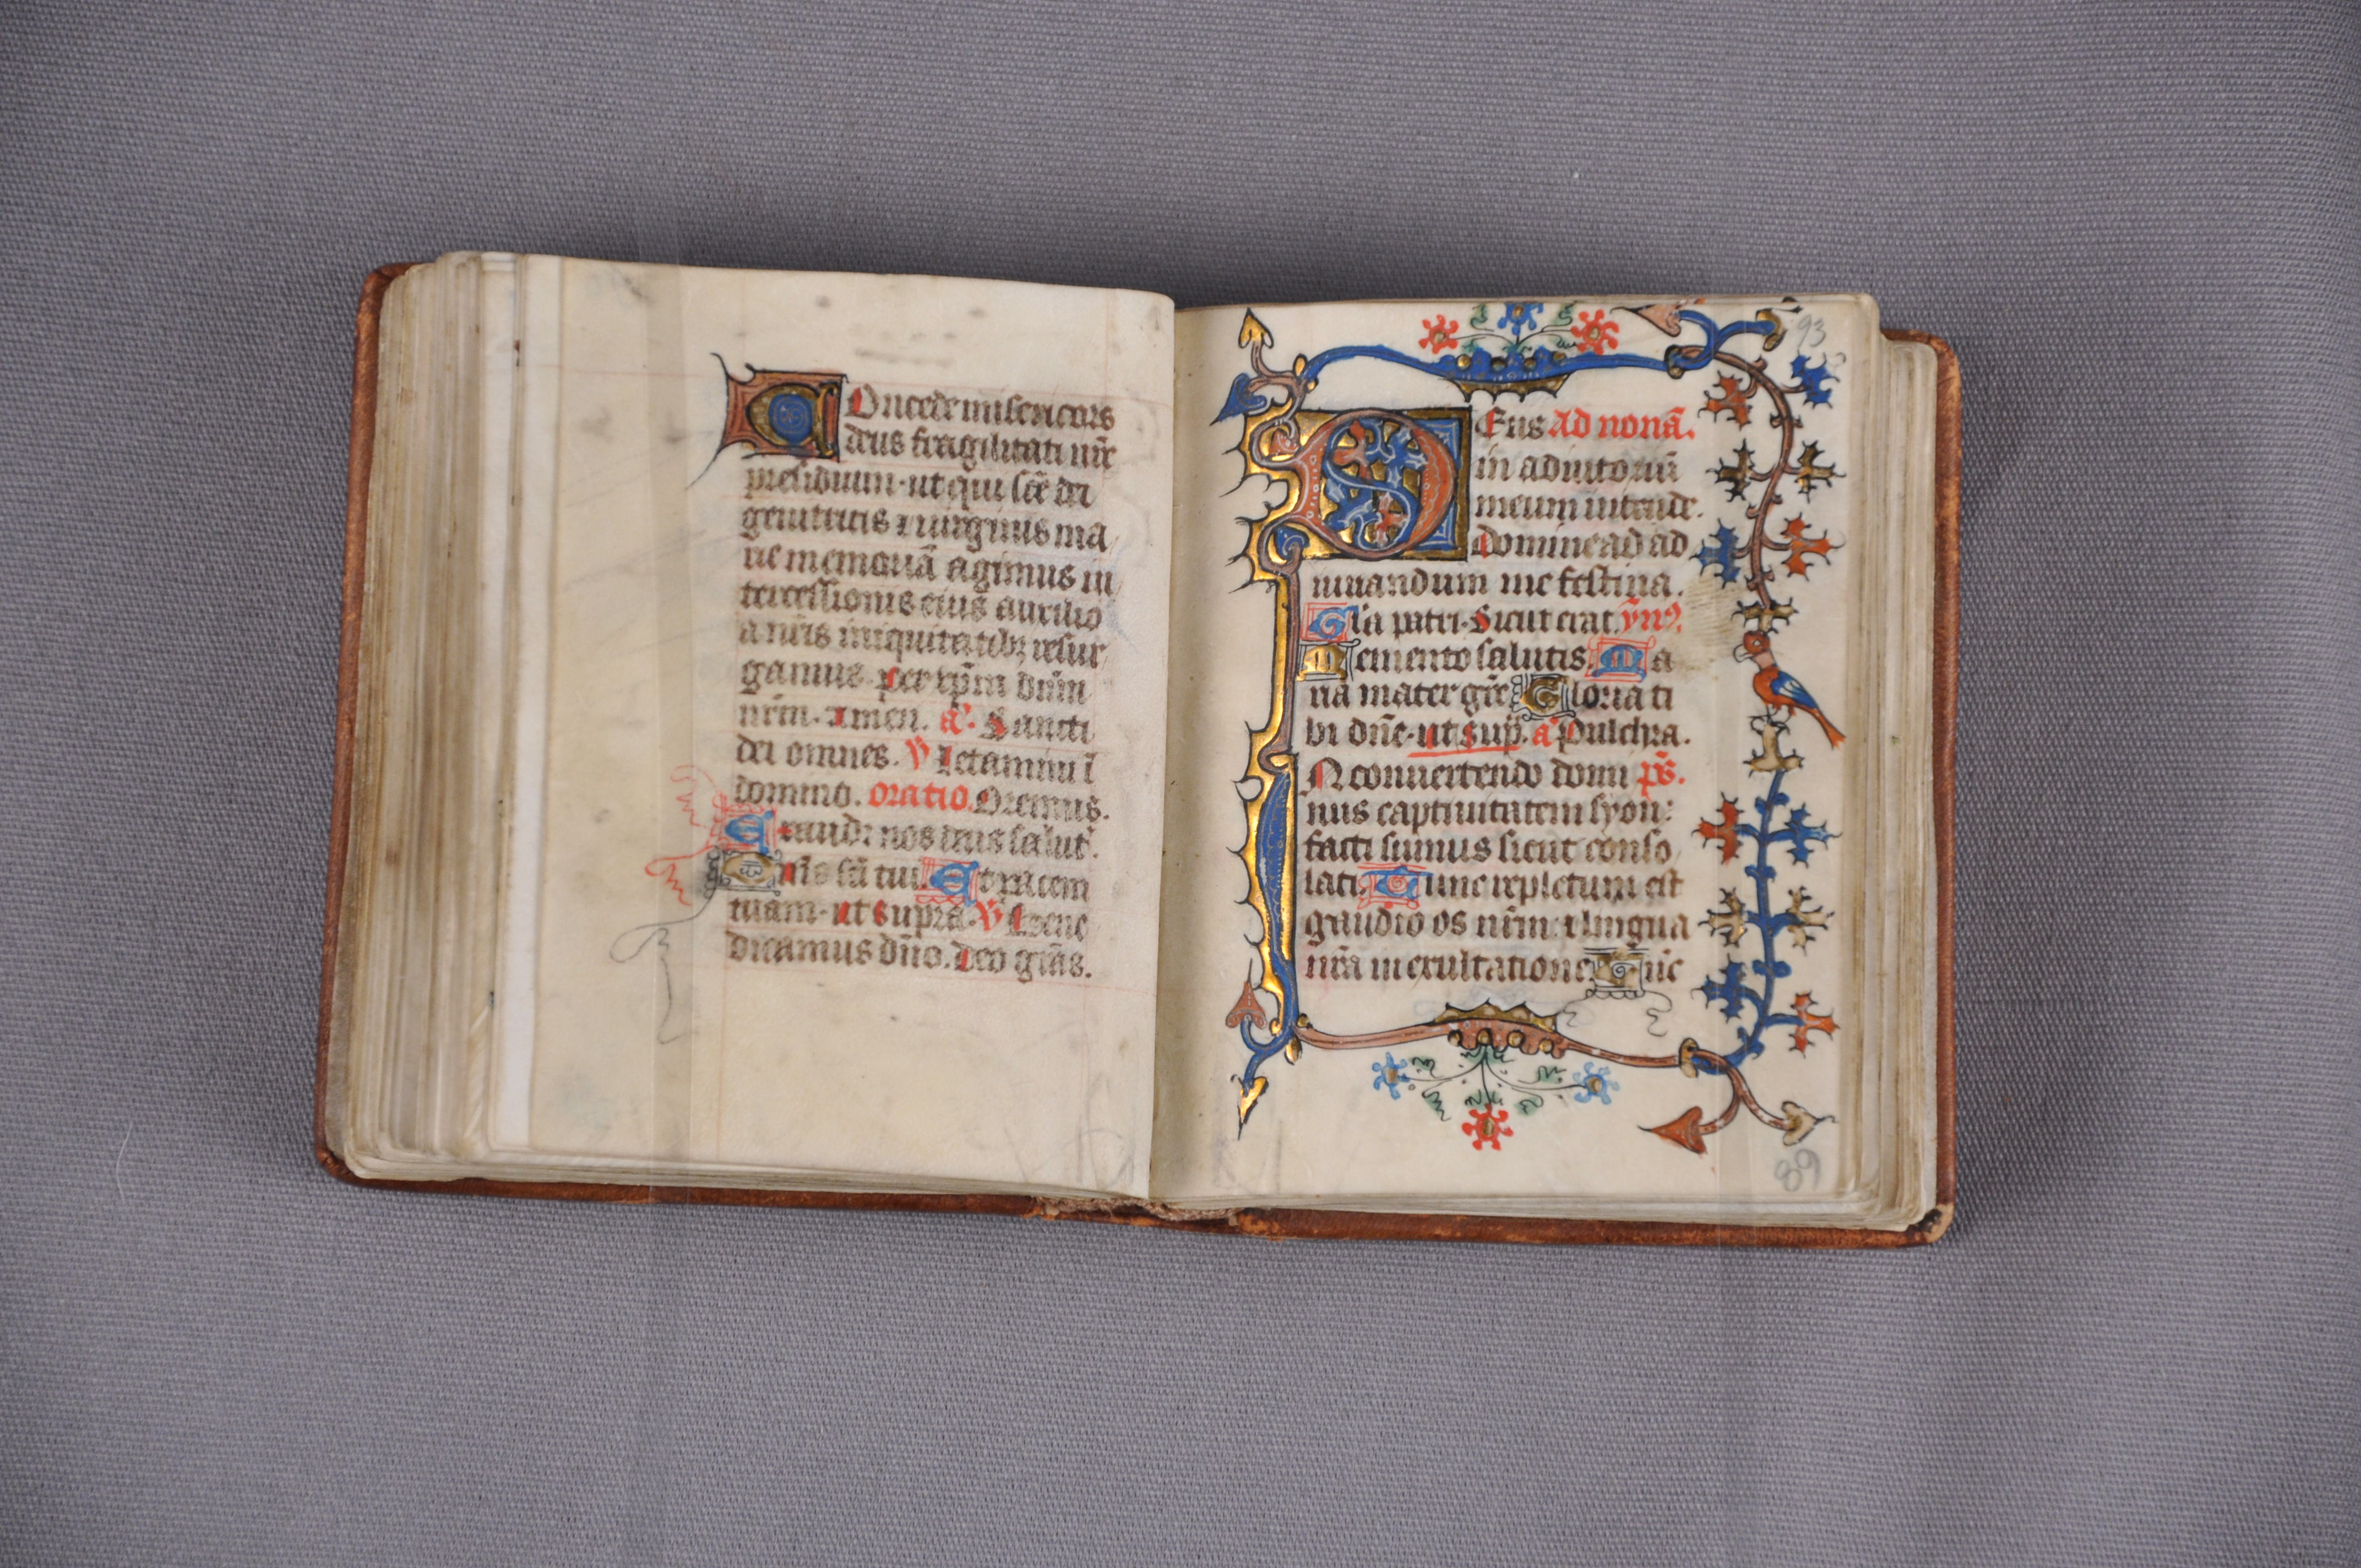 Oncede misericors
deus fragilitati nr̄e
presidium·ut qui sc̄e dei
genitricis ⁊ uirginis ma
rie memoriā agimus in
tercessionis eius auxilio
a nr̄is iniquitatibꝫ resur
gamus. per xp̄m dn̄m
nr̄m. amen. a᷑. Sancti
dei omnes. ℣ letamini ī
domino. oratio. Oremus.
Exaudi nos deus salut᷑.
Omīs sc̄i tui. Et pacem
tuam·ut supra. ℣ Bene
dicamus dn̄o. deo gr̄as.
93
Deus Ad nonā.
in adiutoriū
meum intende.
domine ad ad
iuuandum me festina.
Gl̄a patri. Sicut erat. ym̄9.
Memento salutis. Ma
ria mater gr̄e. Gloria ti
bi dn̄e·ut sup̄. a᷑ Pulchra.
IN conuertendo domi p̄s.
nus captiuitatem syon:
facti sumus sicut conso
lati. Tunc repletum est
gaudio os nr̄m: ⁊ lingua
nr̄a in exultatione. Tūc
89